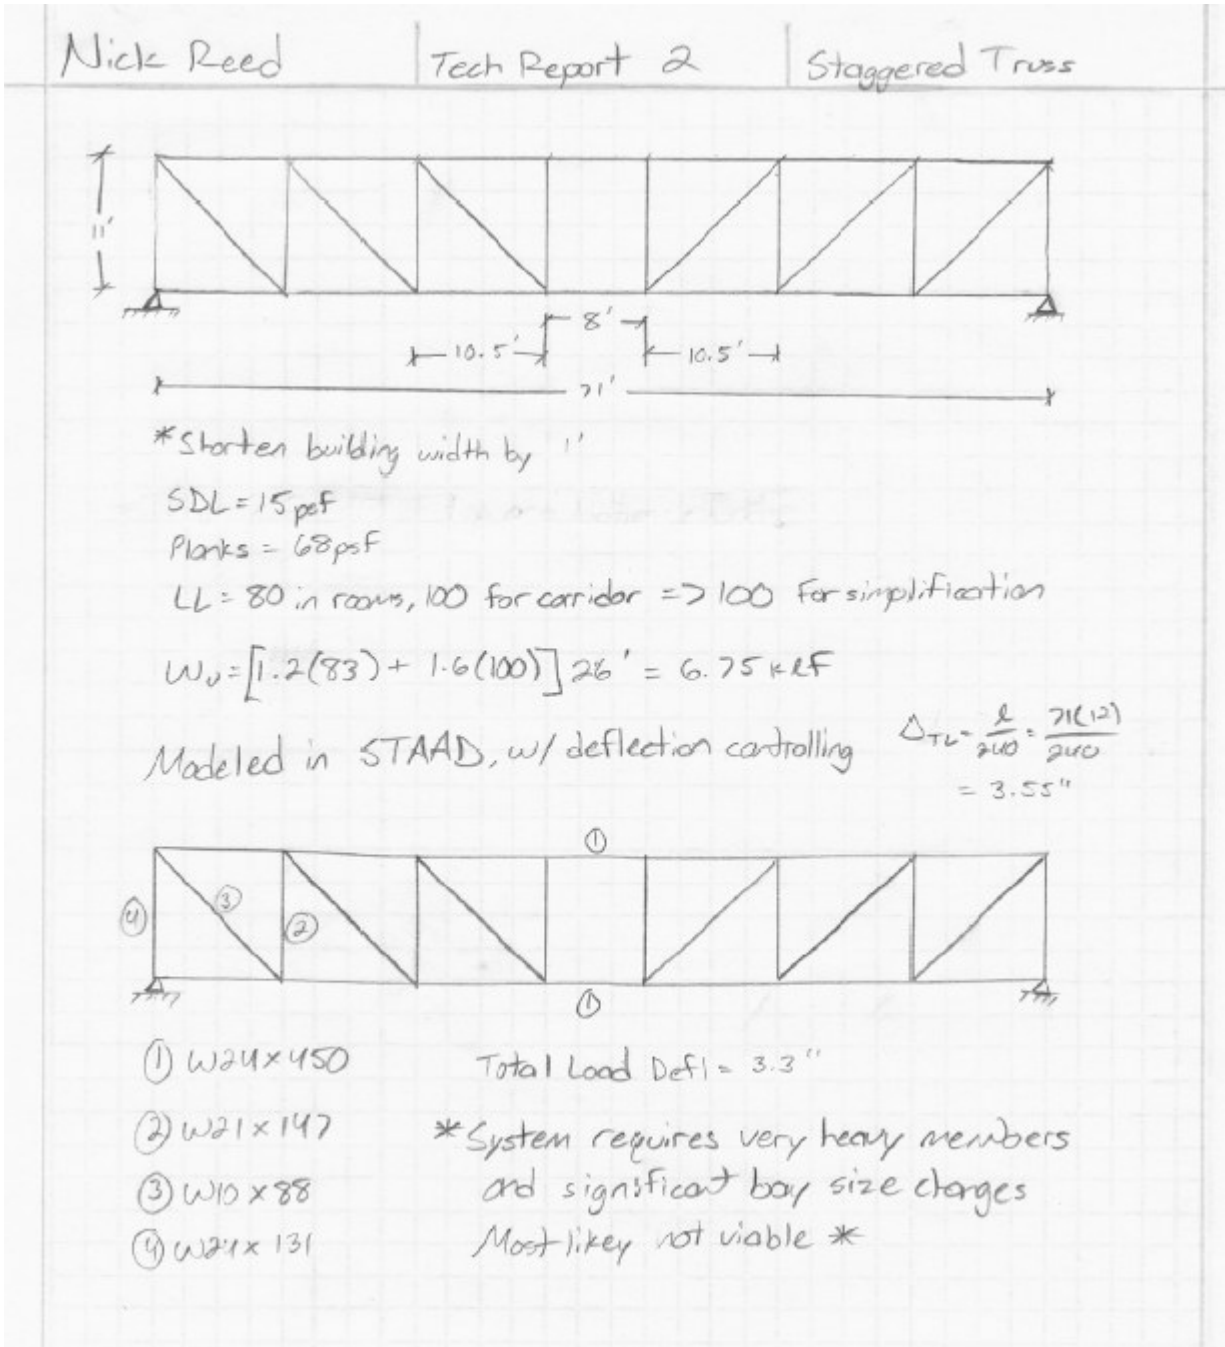 Nick Reed Tech Report 2 Staggered Truss
11'
8'
10.5' 10.5'
71'
*Shorten building width by 1'
SDL = 15 psf
Planks = 68 psf
LL = 80 in rooms, 100 for corridor => 100 for simplification
Wu = [1.2(83) + 1.6(100)] 26' = 6.75 klf
Modeled in STAAD, w/ deflection controlling ΔTL = l/240 = 71(12)/240
= 3.55"
①
④ ③ ②
①
① W24x450 Total Load Defl = 3.3"
② W21x147 *System requires very heavy members
③ W10x88 and significant bay size changes
④ W24x131 Most likey not viable *